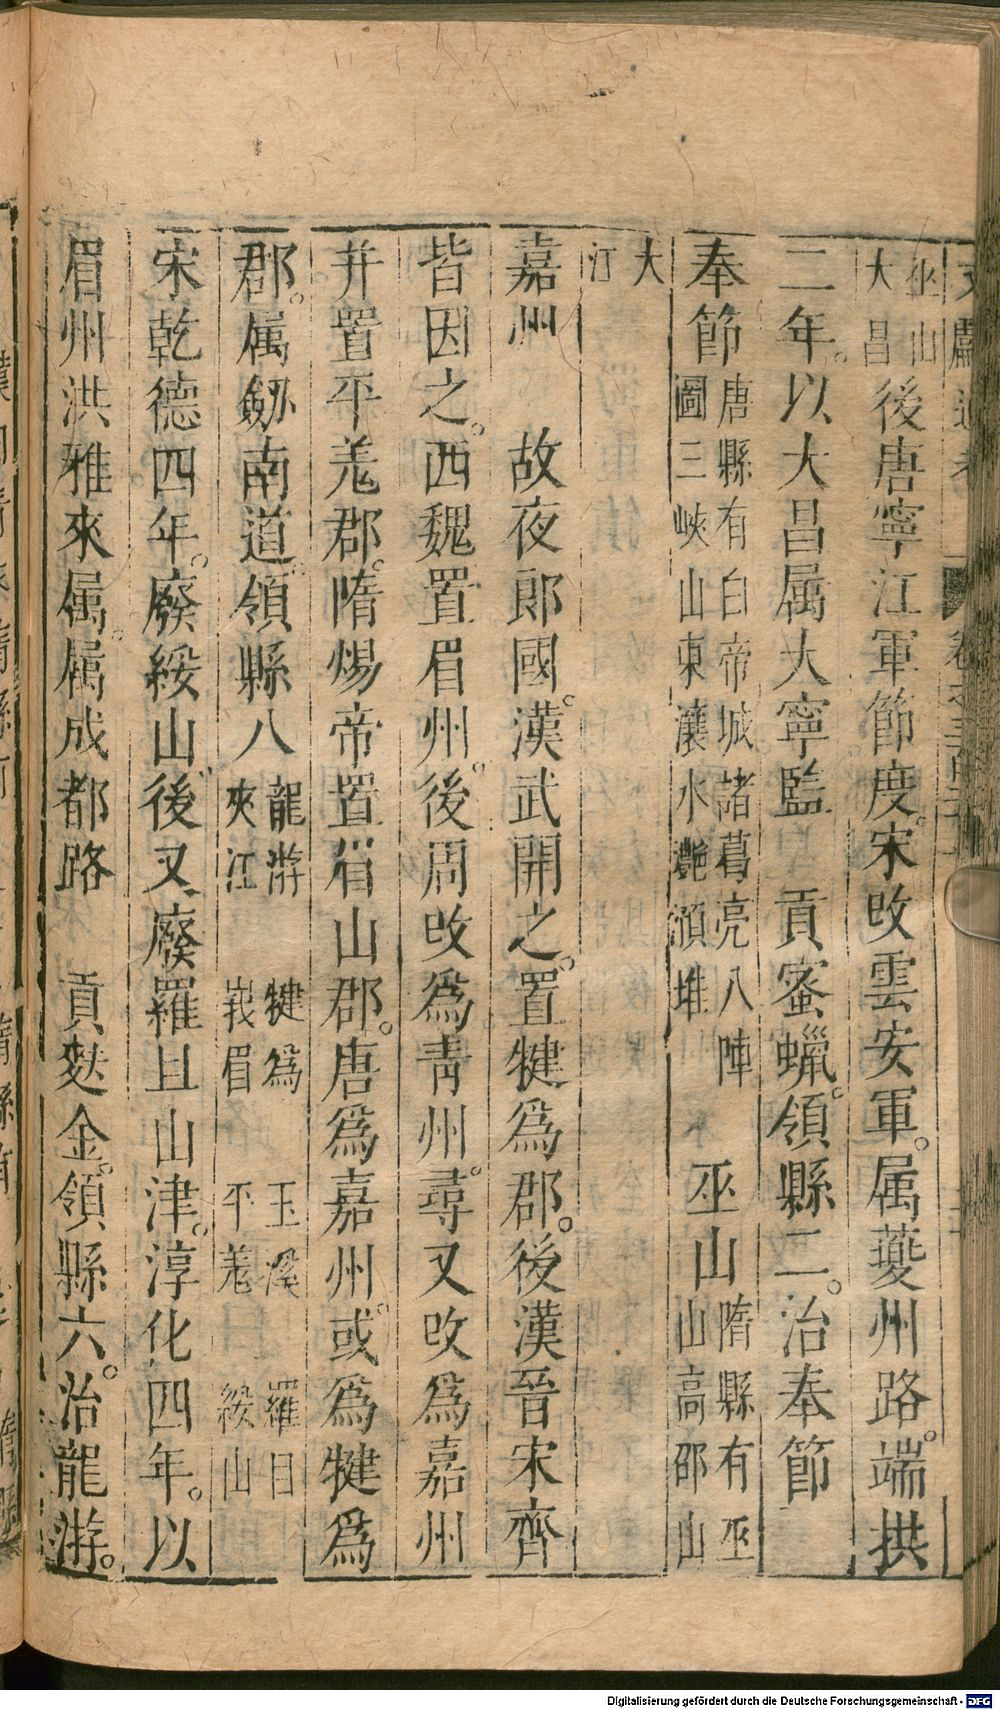 文獻通考 卷之三百二十
巫山大昌後唐寧江軍節度。宋攺雲安軍。属夔州路。端拱
二年。以大昌属大寧監 貢蜜蝋。領縣二。治奉節
奉節 唐縣有白帝城諸葛亮八陣圖三峽山東瀼水灔澦堆 巫山 隋縣有巫山高邵山
大江
嘉州 故夜郎國。漢武開之。置犍爲郡。後漢晉宋齊
皆因之。西魏置眉州。後周攺爲青州。尋又攺爲嘉州
并置平羗郡。隋煬帝置眉山郡。唐爲嘉州。或爲犍爲
郡。属劒南道。領縣八 龍游夾江 犍爲峩眉 玉溪平羗 羅目綏山
宋乾德四年。廢綏山。後又廢羅目山津。淳化四年。以
眉州洪雅來属。属成都路 貢麩金。領縣六。治龍游。
Digitalisierung gefördert durch die Deutsche Forschungsgemeinschaft - DFG